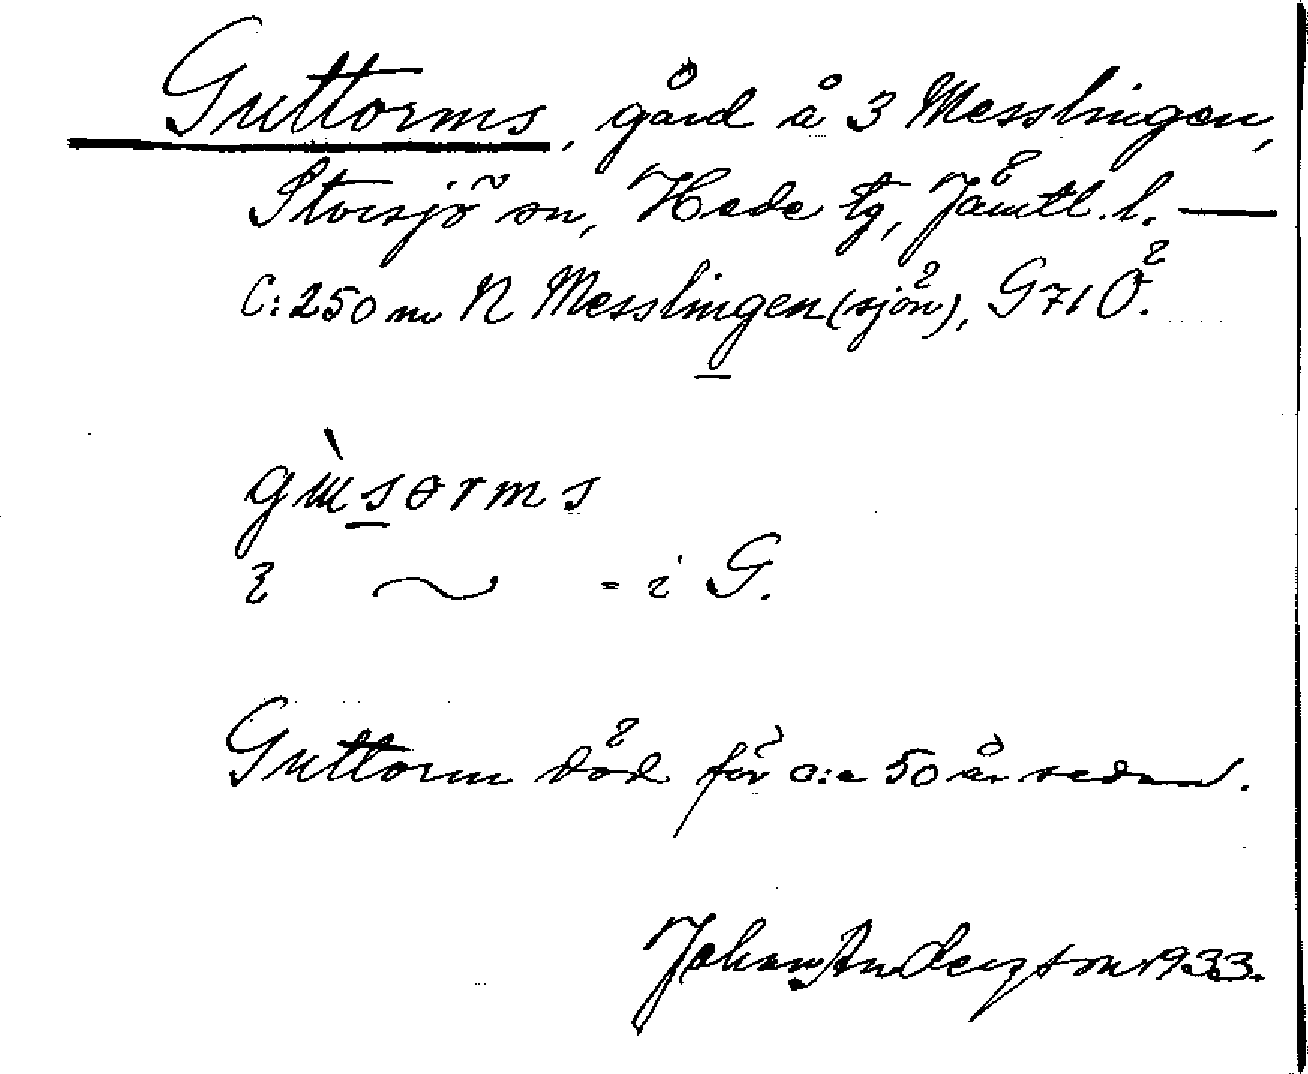 Guttorms, gård å 3 Messlingen,
Storsjö sn, Hede tg, Jämtl. l. —
C: 250 m N Messlingen (sjön), G 71 Ö.
i G.
Guttorm död för c:a 50 år sedan.
Johan Anderzton 1933.